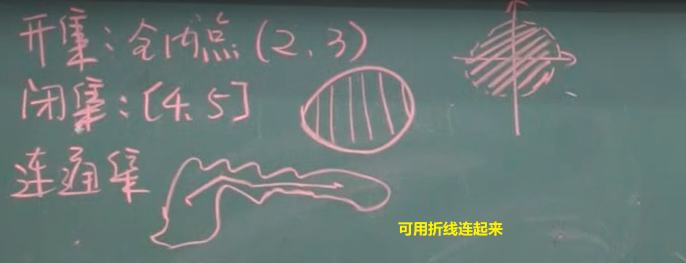 开集：全内点(2,3)
闭集：[4,5]
连通集
可用折线连起来